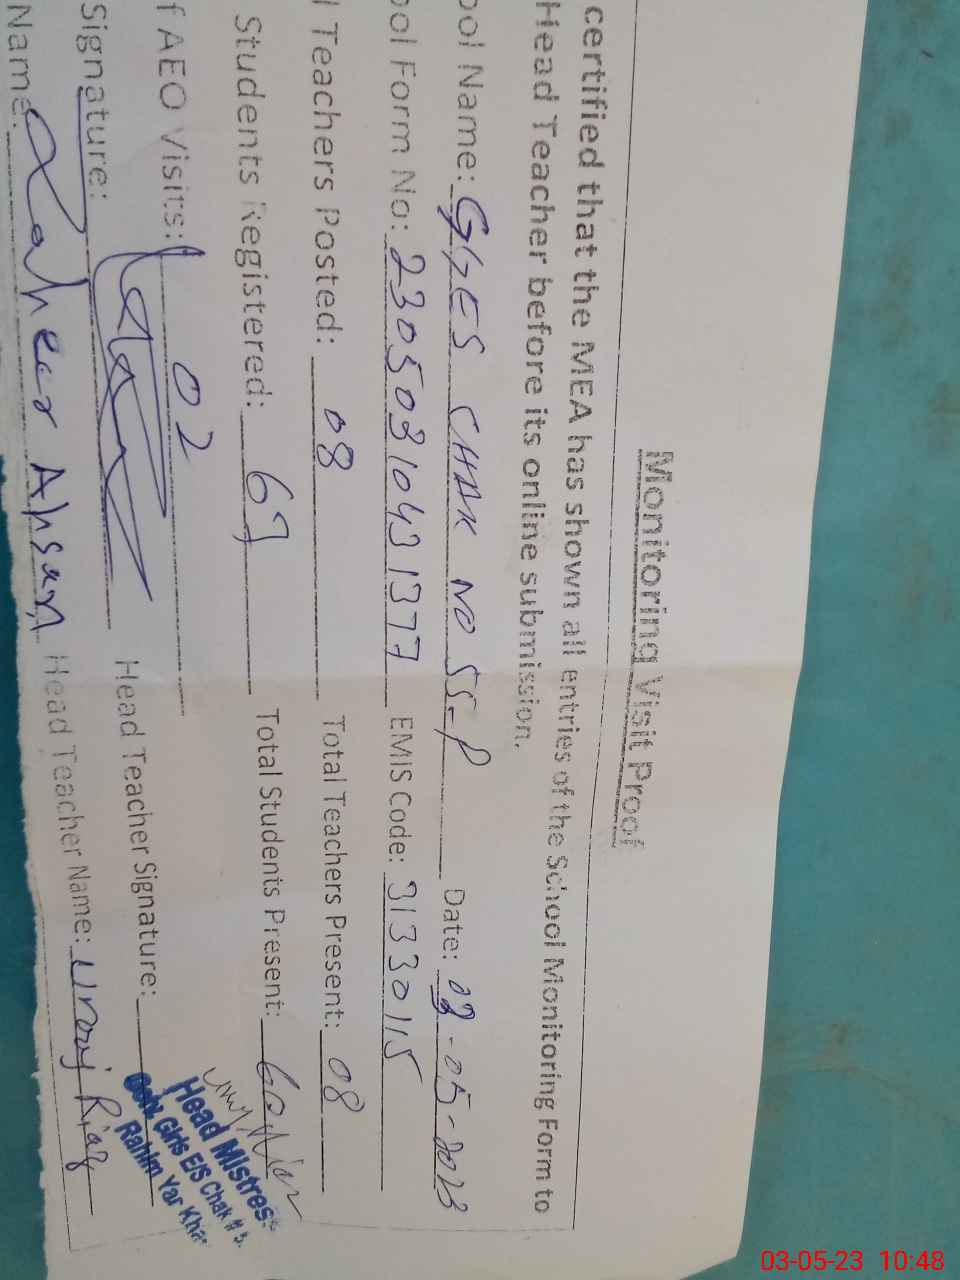 Monitoring Visit Proof
certified that the MEA has shown all entries of the School Monitoring Form to
Head Teacher before its online submission.
ool Name: GGES CHAK NO 55-P Date: 03-05-2023
ool Form No: 2305031043 1377 EMIS Code: 31330115
l Teachers Posted: 08 Total Teachers Present: 08
Students Registered: 67 Total Students Present: 60
f AEO Visits: 02
Signature: Head Teacher Signature:
Name: Zaheer Ahsan Head Teacher Name: Urooj Riaz
Head Mistres
Govt. Girls E/S Chak # 5
Rahim Yar Kha
03-05-23 10:48